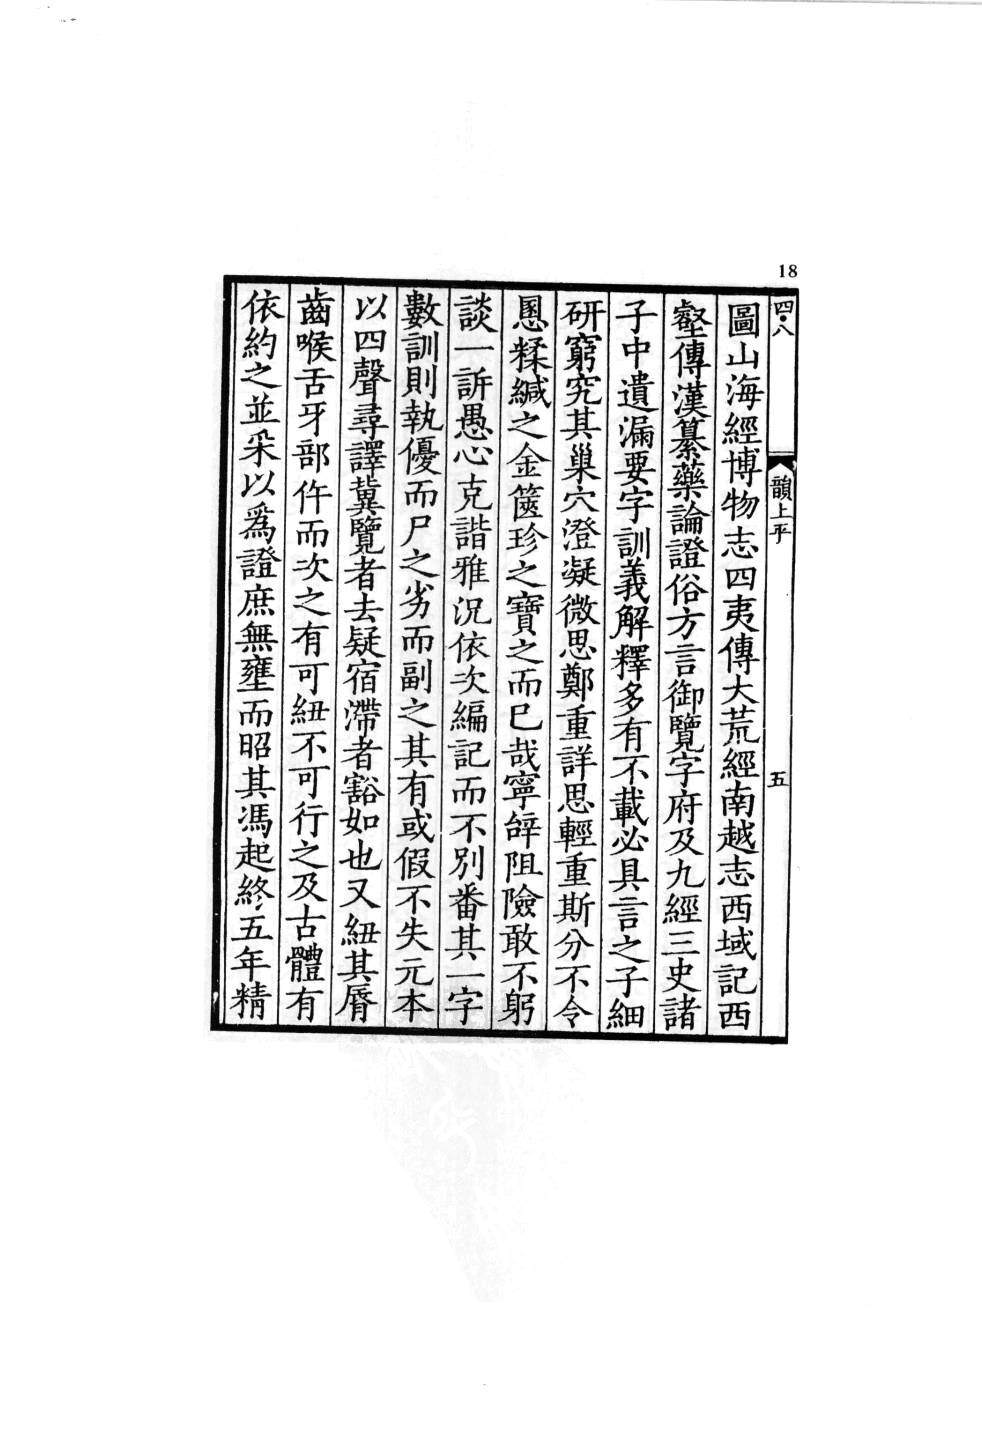 18
四八
韻上平
五
圖山海經博物志四夷傳大荒經南越志西域記西
壑傳漢纂藥論證俗方言御覽字府及九經三史諸
子中遺漏要字訓義解釋多有不載必具言之子細
研窮究其巢穴澄凝微思鄭重詳思輕重斯分不令
慁糅緘之金篋珍之寶之而巳哉寧辝阻險敢不躬
談一訴愚心克諧雅況依次編記而不別番其一字
數訓則執優而尸之劣而副之其有或假不失元本
以四聲尋譯冀覽者去疑宿滯者豁如也又紐其脣
齒喉舌牙部仵而次之有可紐不可行之及古體有
依約之並采以爲證庶無壅而昭其馮起終五年精